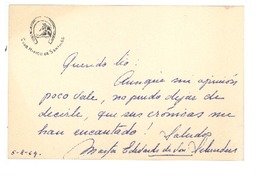 Club Hípico de Santiago
Querido tío:
Aunque mi opinión
poco vale, no puedo dejar de
decirle, que sus crónicas me
han encantado! Saludos
Marta Edwards de
5-8-69.